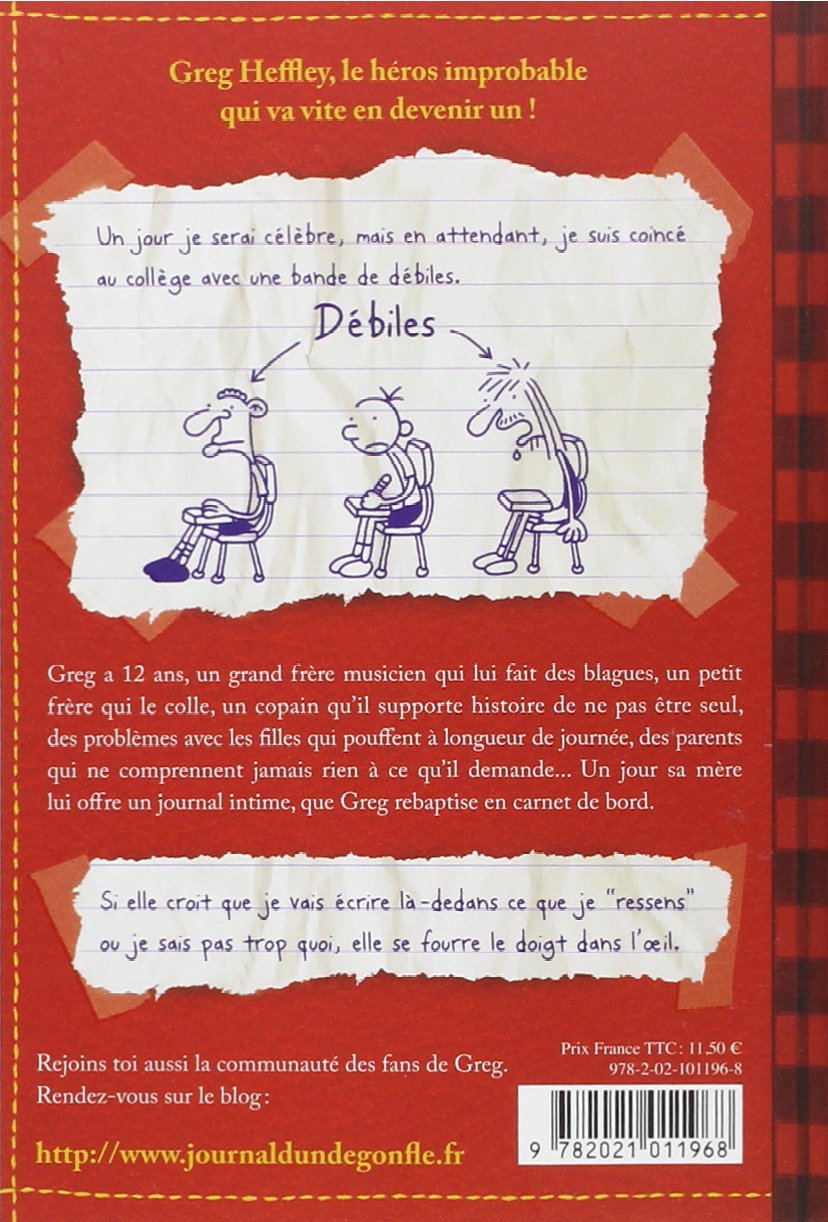 Greg Heffley, le héros improbable
qui va vite en devenir un !
Un jour je serai célèbre, mais en attendant, je suis coincé
au collège avec une bande de débiles.
Débiles
Greg a 12 ans, un grand frère musicien qui lui fait des blagues, un petit
frère qui le colle, un copain qu'il supporte histoire de ne pas être seul,
des problèmes avec les filles qui pouffent à longueur de journée, des parents
qui ne comprennent jamais rien à ce qu'il demande... Un jour sa mère
lui offre un journal intime, que Greg rebaptise en carnet de bord.
Si elle croit que je vais écrire là-dedans ce que je "ressens"
ou je sais pas trop quoi, elle se fourre le doigt dans l'œil.
Rejoins toi aussi la communauté des fans de Greg.
Rendez-vous sur le blog :
http://www.journaldundegonfle.fr
Prix France TTC : 11.50 €
978-2-02-101196-8
9 782021 011968